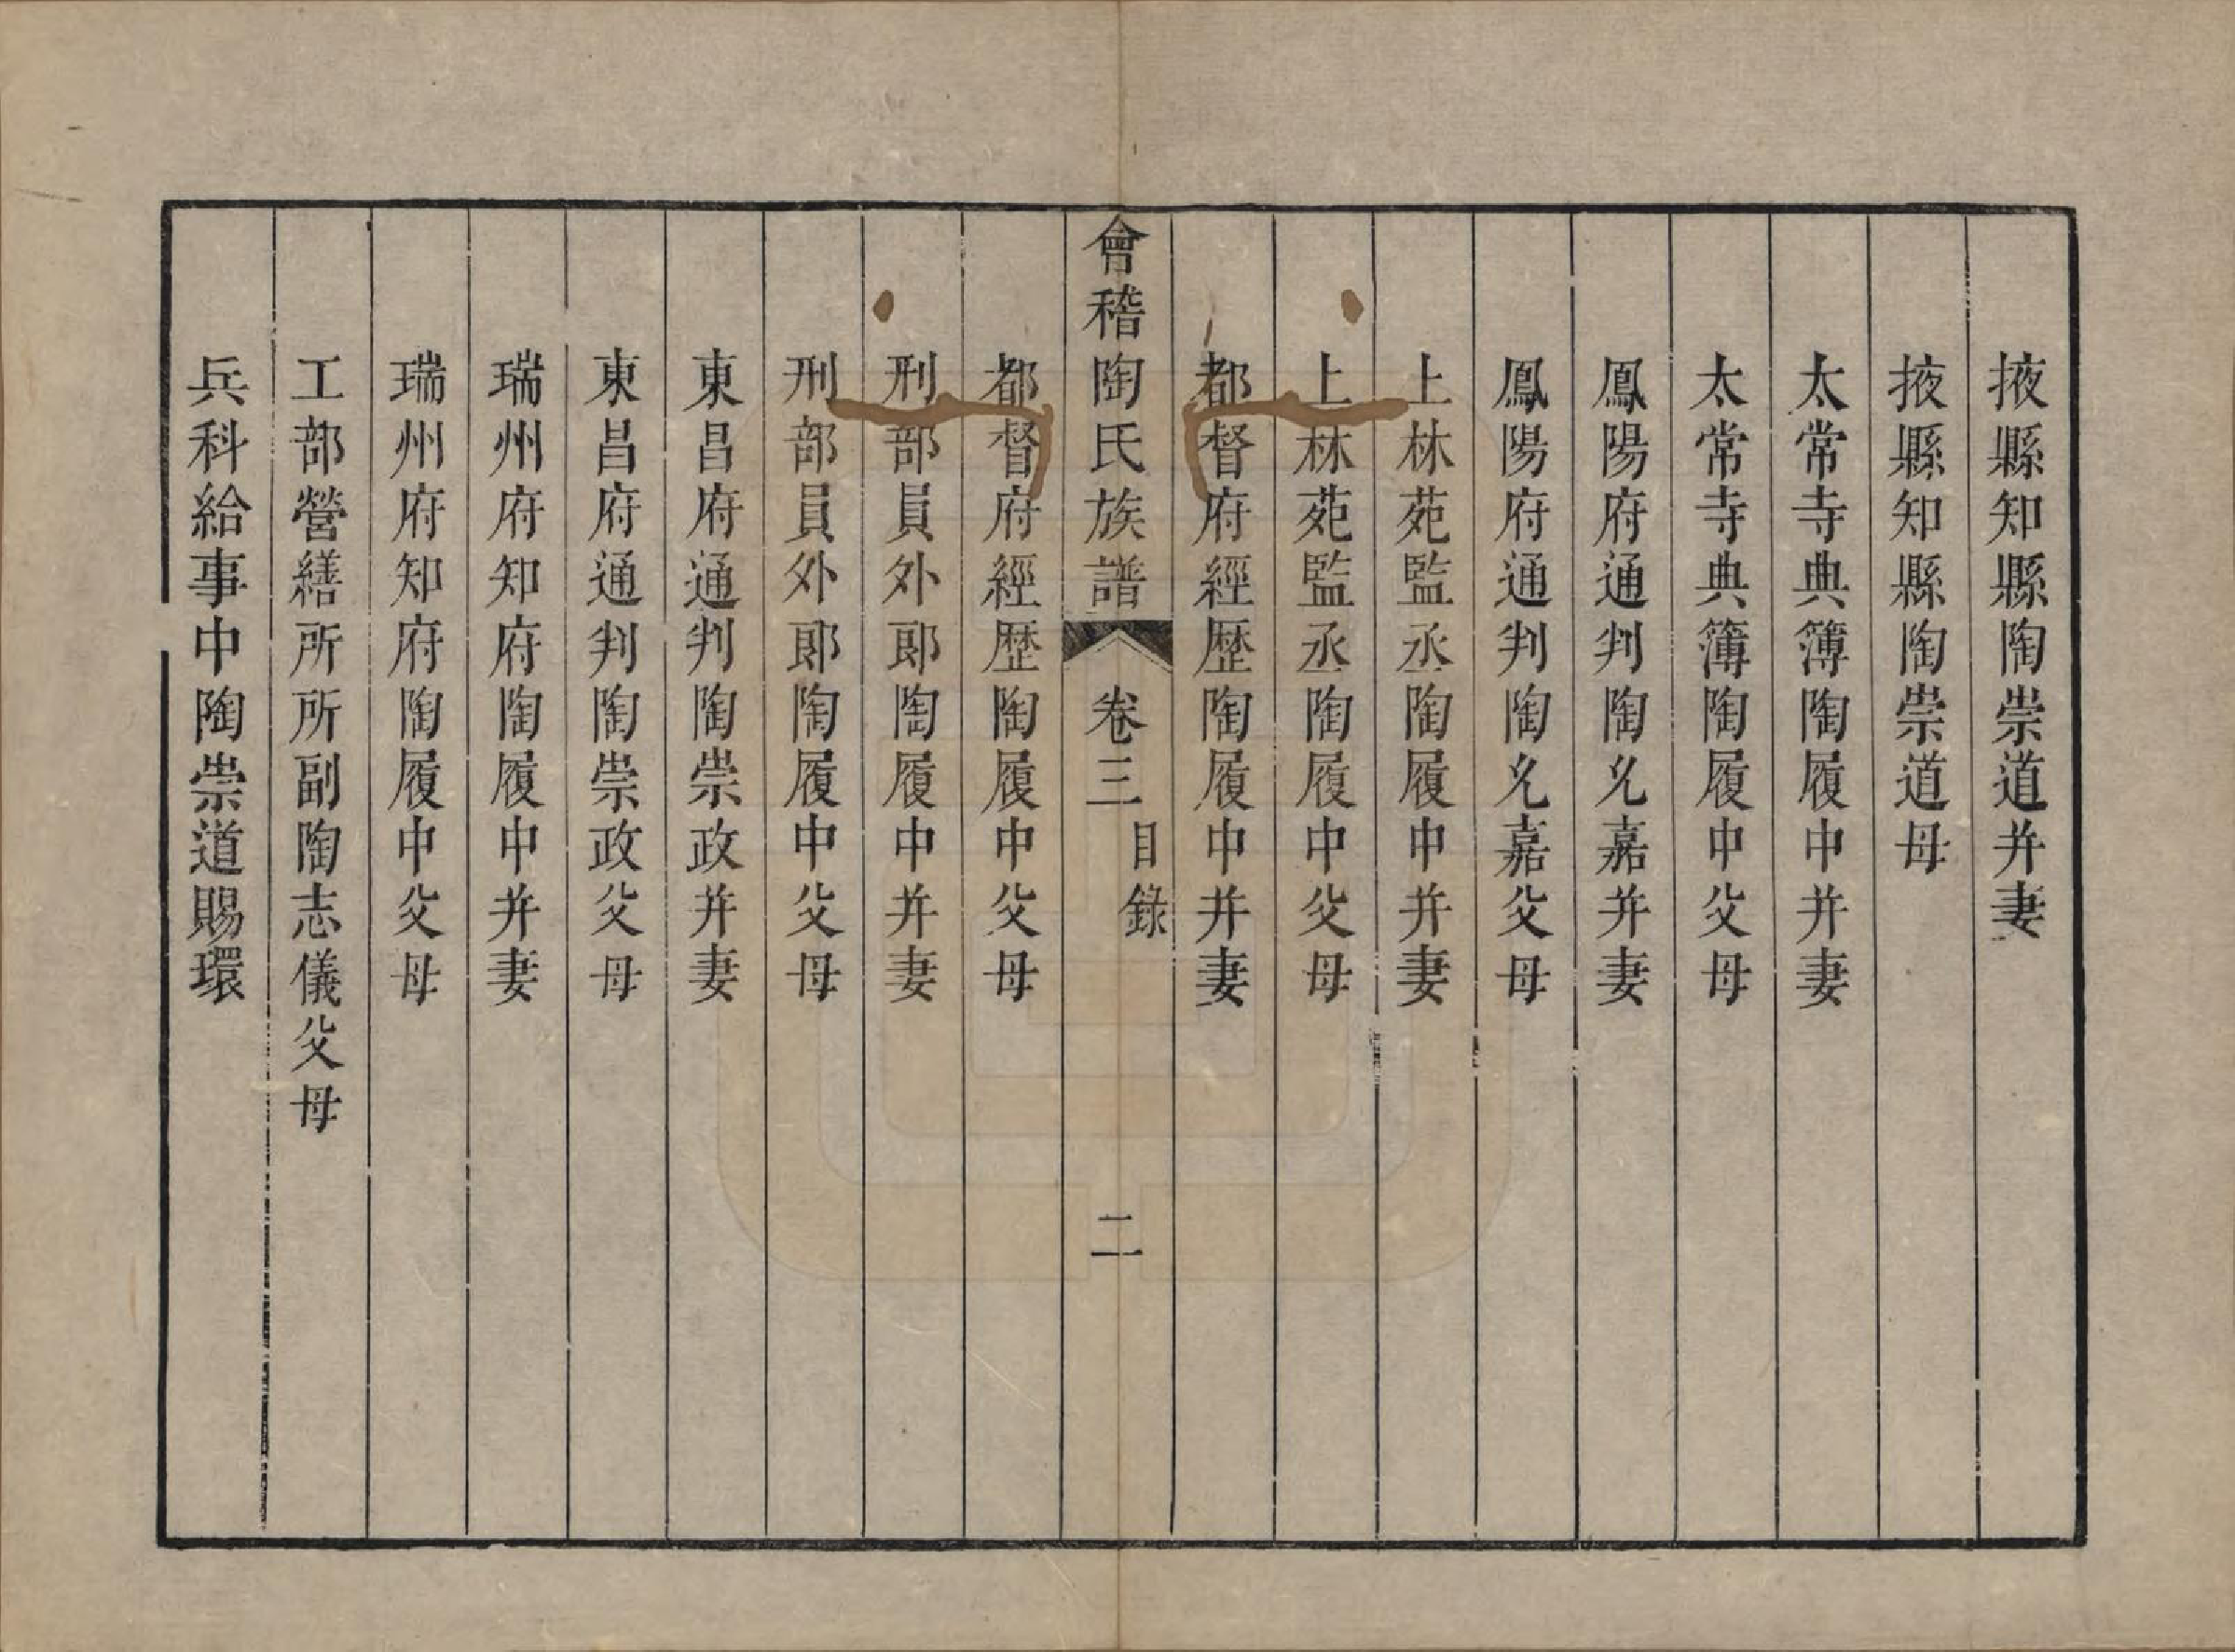 掖縣知縣陶崇道并妻
掖縣知縣陶崇道母
太常寺典簿陶履中并妻
太常寺典簿陶履中父母
鳳陽府通判陶允嘉并妻
鳳陽府通判陶允嘉父母
上林苑監丞陶履中并妻
上林苑監丞陶履中父母
都督府經歷陶履中并妻
會稽陶氏族譜 卷三 目錄 二
都督府經歷陶履中父母
刑部員外郎陶履中并妻
刑部員外郎陶履中父母
東昌府通判陶崇政并妻
東昌府通判陶崇政父母
瑞州府知府陶履中并妻
瑞州府知府陶履中父母
工部營繕所所副陶志儀父母
兵科給事中陶崇道賜環